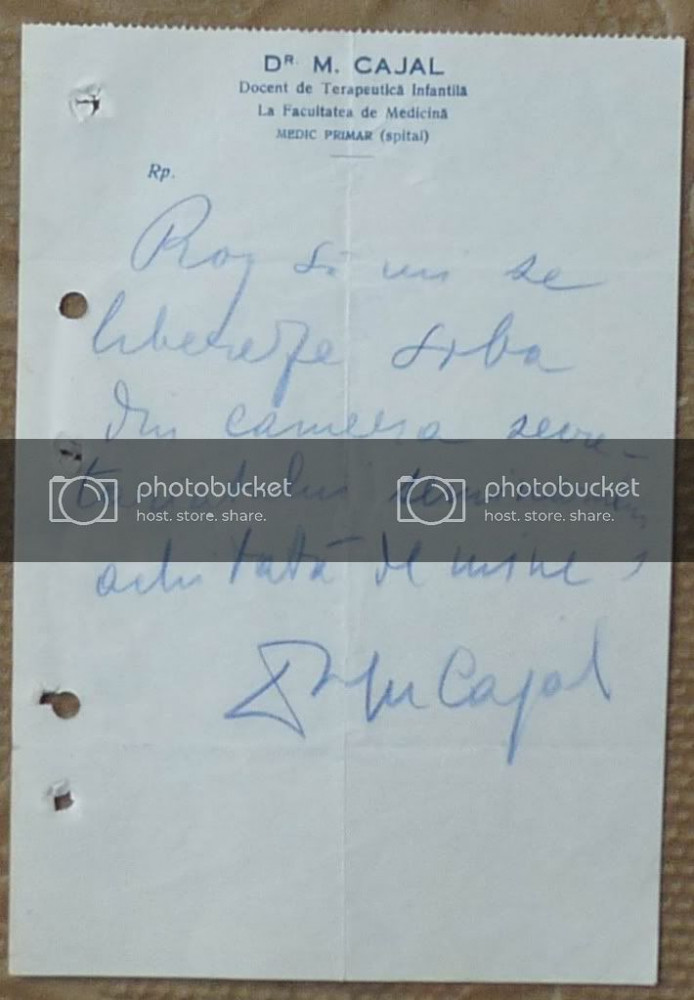 DR. M. CAJAL
Docent de Terapeutică Infantilă
La Facultatea de Medicină
MEDIC PRIMAR (spital)
Rp.
Rog să mi se
libereze soba
din camera secre-
tariatului
photobucket photobucket
host. store. share. host. store. share.
achitată de mine
Dr M Cajal